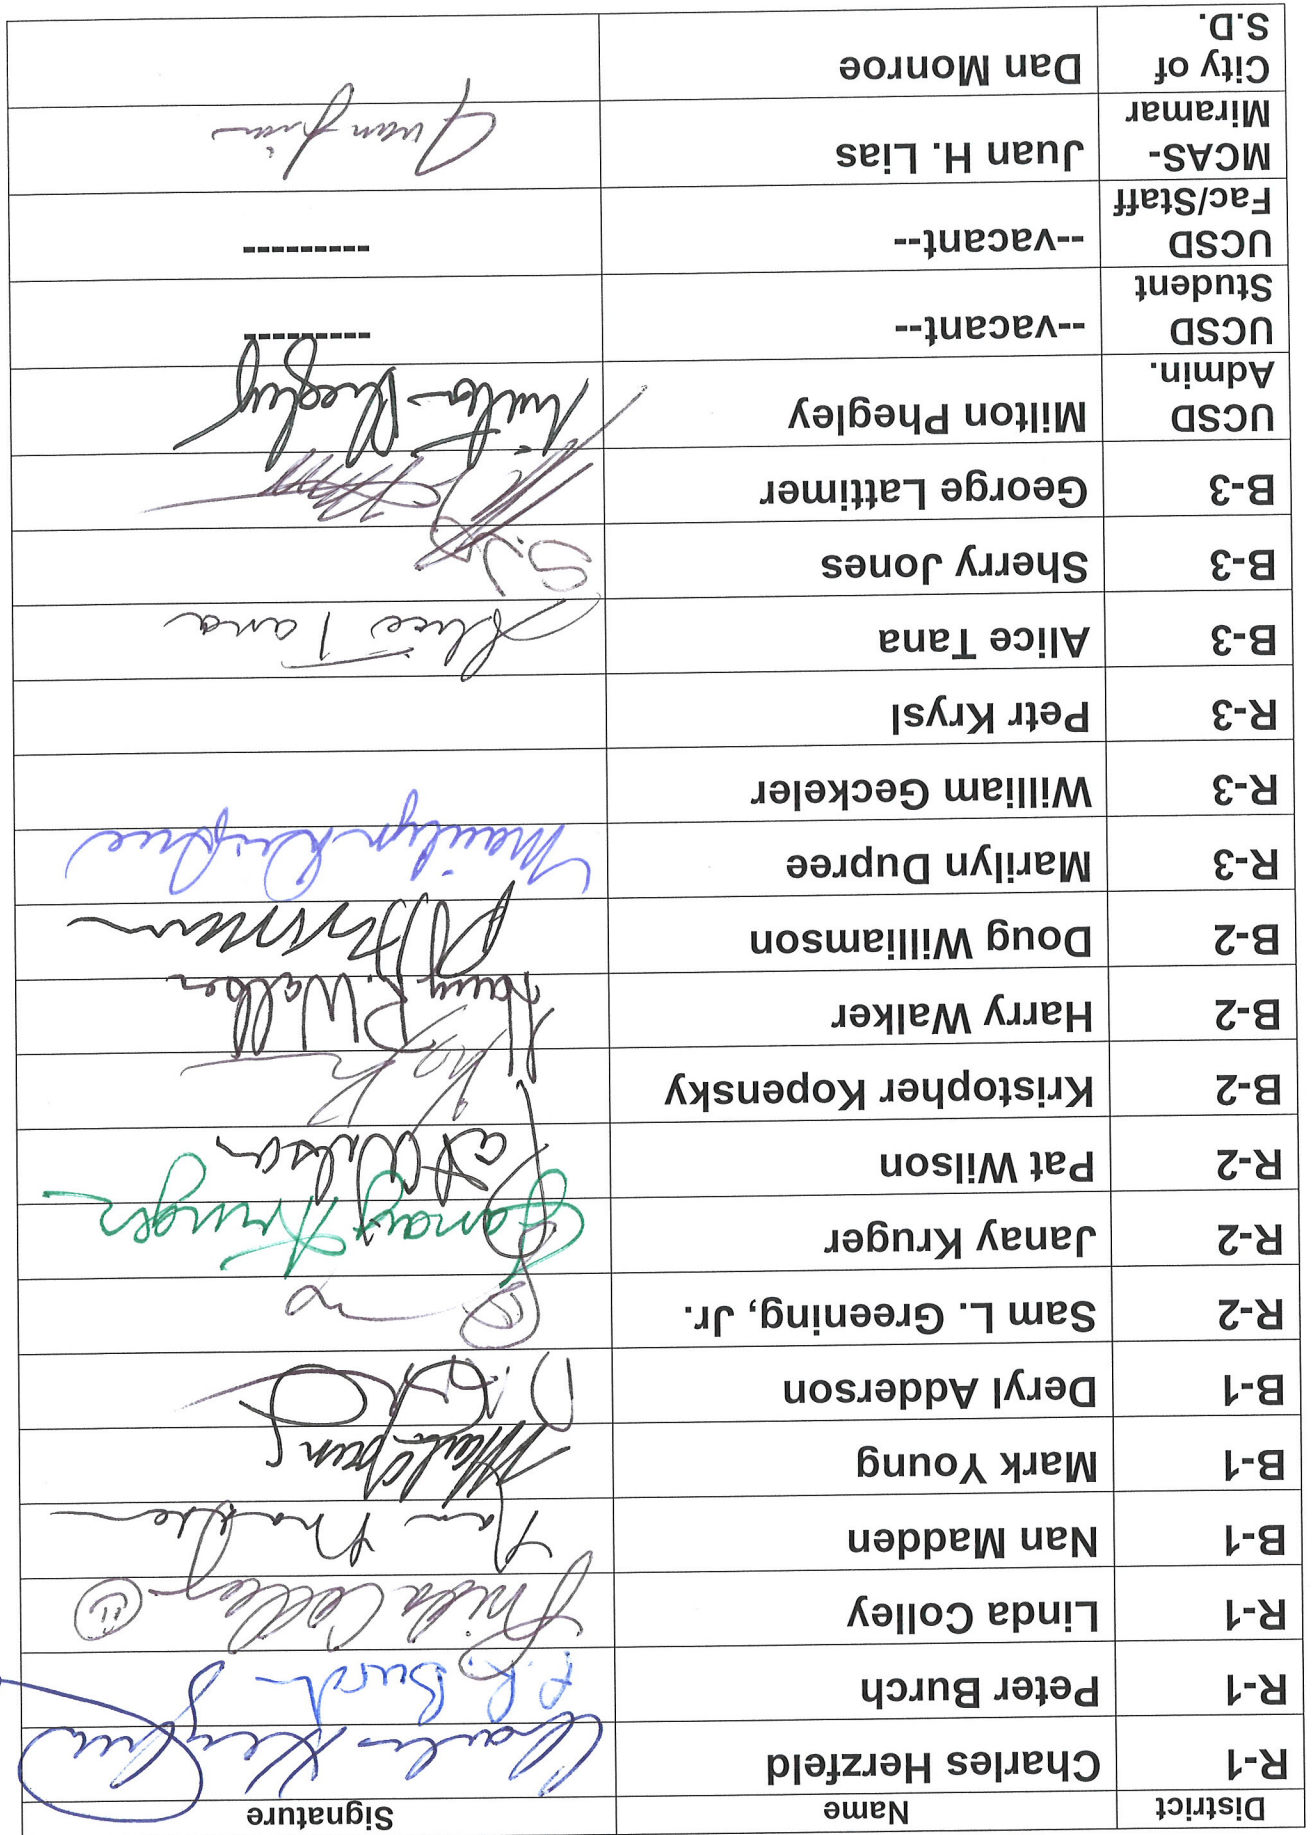 District Name Signature
R-1 Charles Herzfeld Charles Herzfeld
R-1 Peter Burch P.R. Burch
R-1 Linda Colley Linda Colley
B-1 Nan Madden Nan Madden
B-1 Mark Young Mark Young
B-1 Deryl Adderson
R-2 Sam L. Greening, Jr.
R-2 Janay Kruger Janay Kruger
R-2 Pat Wilson Pat Wilson
B-2 Kristopher Kopensky
B-2 Harry Walker Harry R. Walker
B-2 Doug Williamson
R-3 Marilyn Dupree Marilyn Dupree
R-3 William Geckeler
R-3 Petr Krysl
B-3 Alice Tana Alice Tana
B-3 Sherry Jones
B-3 George Lattimer
UCSD
Admin.
Milton Phegley Milton Phegley
UCSD
Student
--vacant-- ---------
UCSD
Fac/Staff
--vacant-- ---------
MCAS-
Miramar
Juan H. Lias Juan Lias
City of
S.D.
Dan Monroe